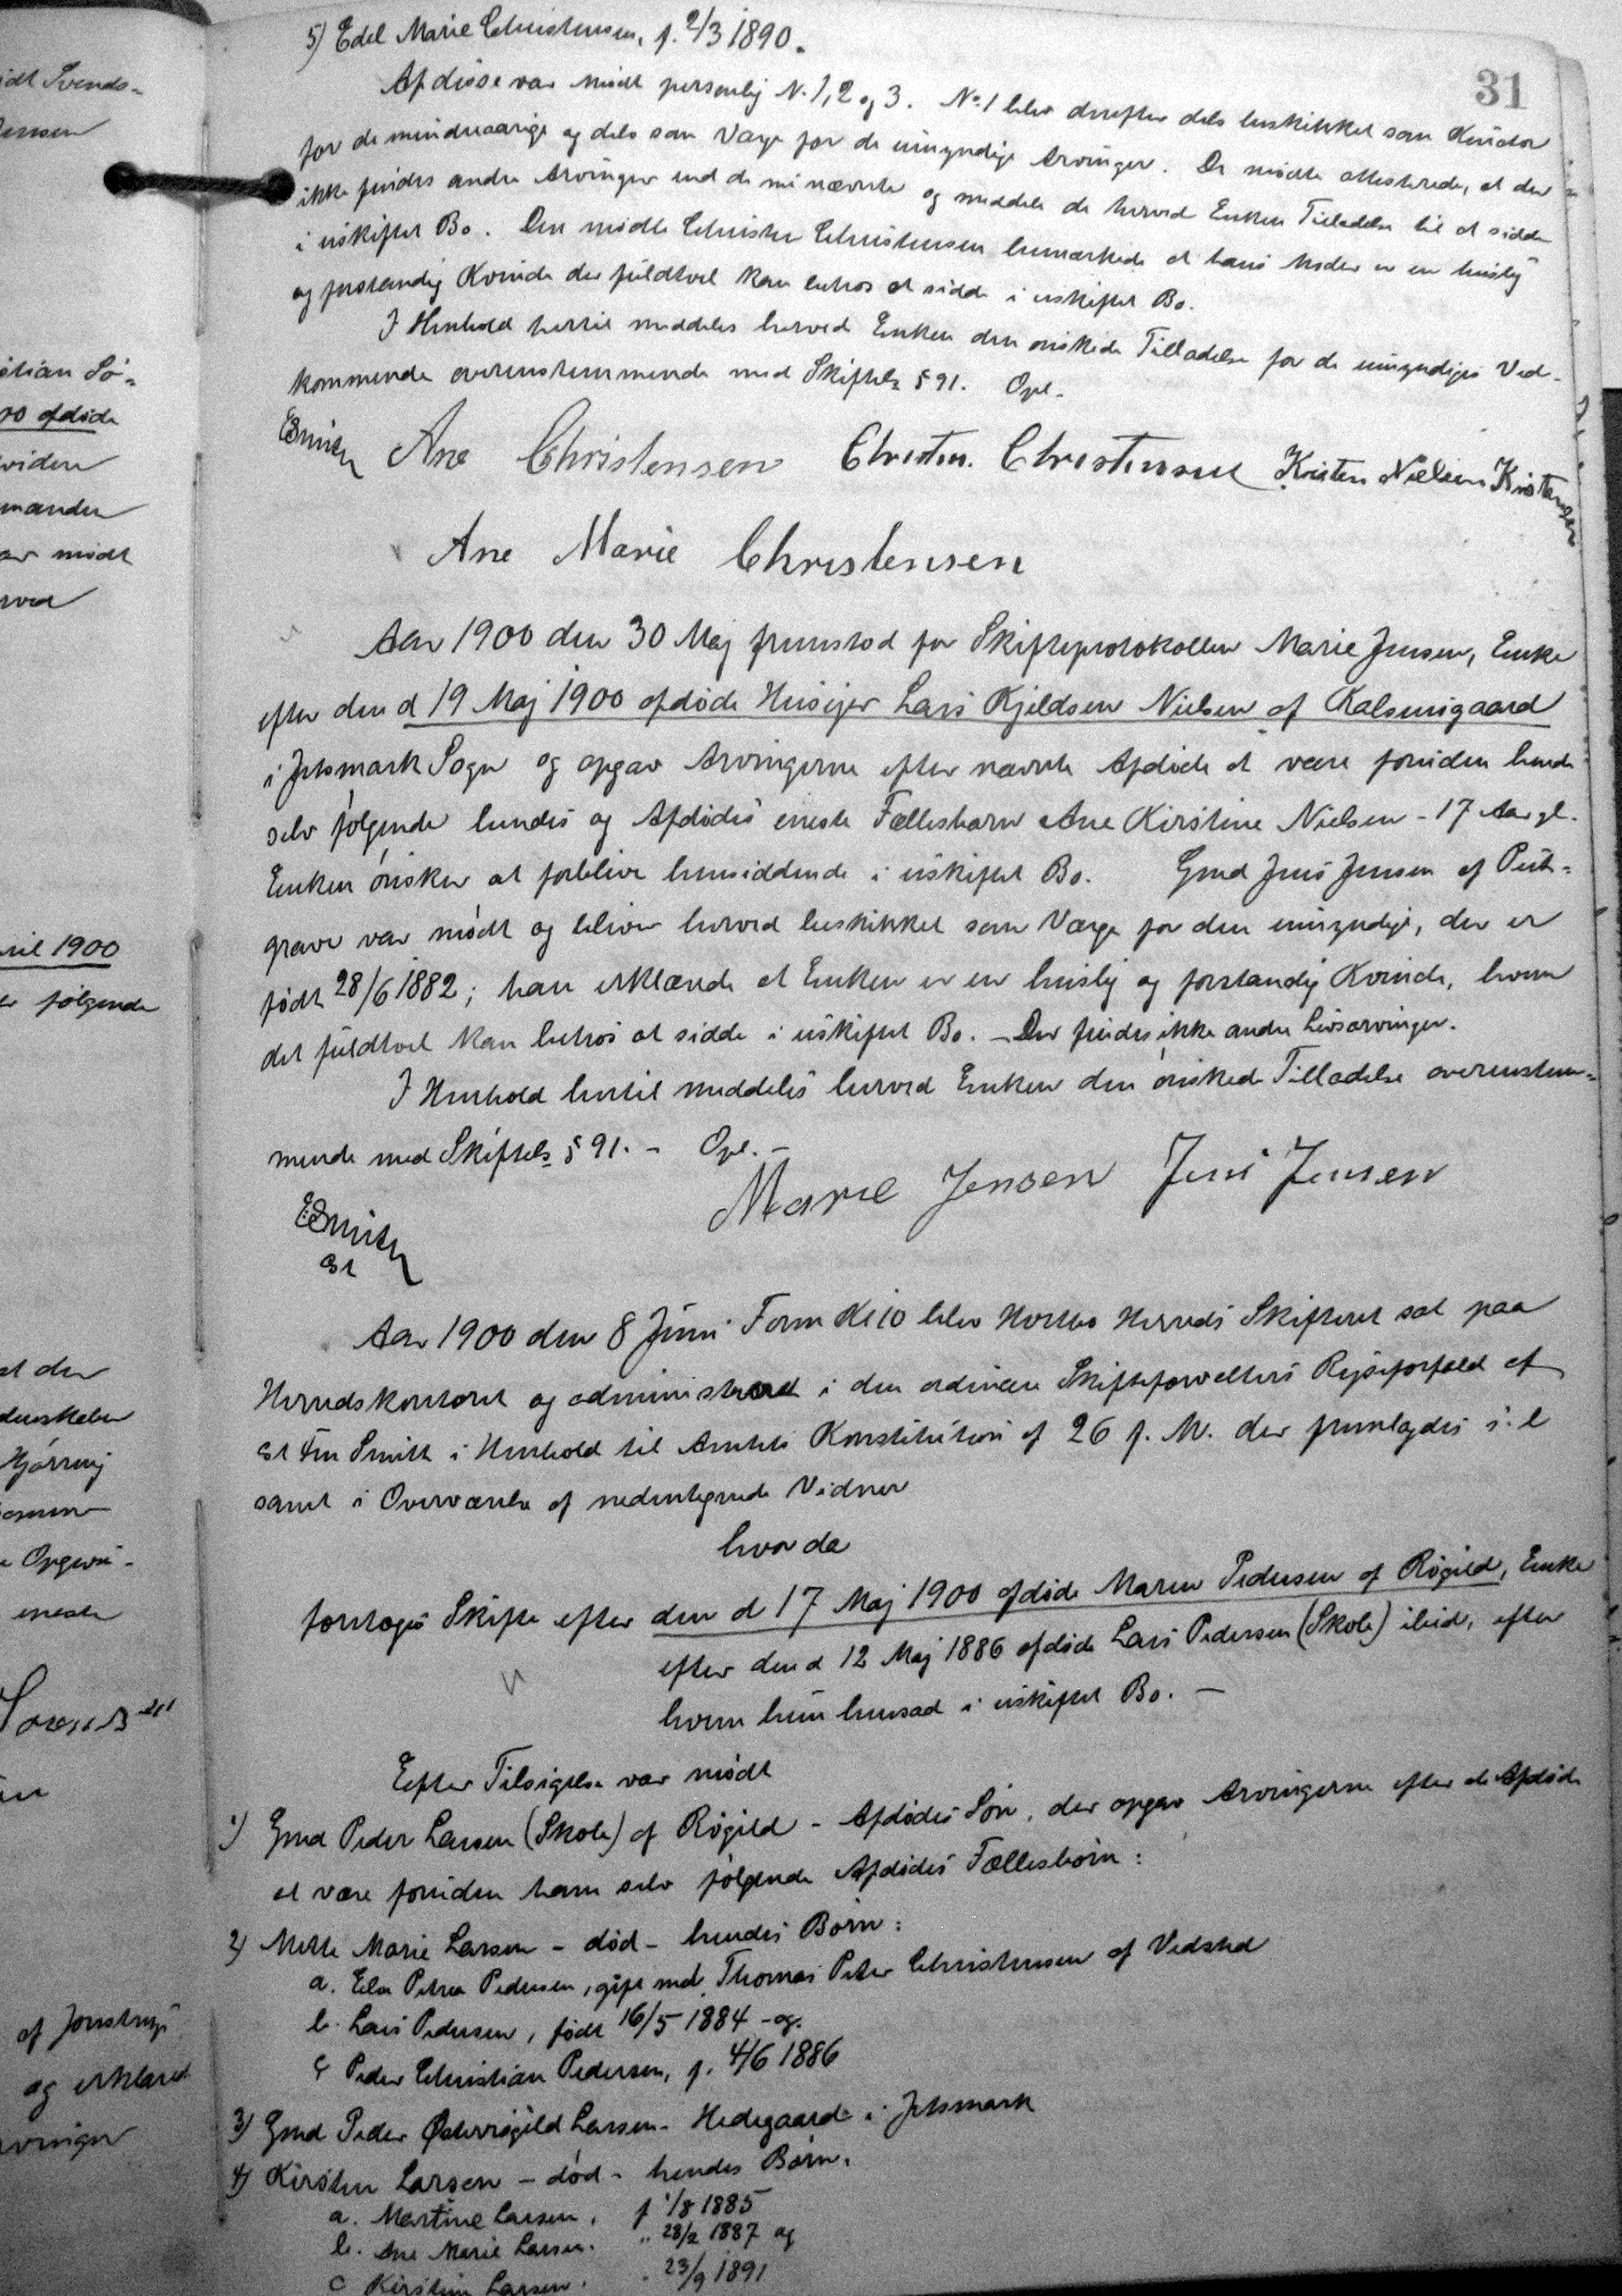 31
5) Edel Marie Christensen, f. 2/3 1890.
Af disse var mødt personlig N. 1, 2 og 3. No. 1 blev derefter dels beskikket som Kurator
for de mindreaarige og dels som Værge for de umyndige Arvinger. De mødte attesterede, at der
ikke findes andre Arvinger end de nu nævnte og meddele de herved Enken Tilladelse til at sidde
i uskiftet Bo. Den mødte Christen Christensen bemærkede at hans Moder er en huslig
og forstandig Kvinde der fuldtvel kan betros at sidde i uskiftet Bo.
I Henhold hertil meddeles herved Enken den ønskede Tilladelse for de umyndiges Ved-
kommende overensstemmende med Skiftels § 91. Opl.
ESmith Ane Christensen Christen. Christensen Kristen Nielsen Kristensen
Ane Marie Christensen
Aar 1900 den 30 Maj fremstod for Skifteprotokollen Marie Jensen, Enke
efter den d 19 Maj 1900 afdøde Husejer Lars Kjeldsen Nielsen af Kalsensgaard
i Jetsmark Sogn og opgav Arvingerne efter nævnte Afdøde at være foruden hende
selv følgende hendes og Afdødes eneste Fællesbarn Ane Kirstine Nielsen - 17 Aar gl.
Enken ønsker at forblive hensiddende i uskiftet Bo. Gmd Jens Jensen af Put-
grave var mødt og bliver herved beskikket som Værge for den umyndige, der er
født 28/6 1882; han erklærede at Enken er en huslig og forstandig Kvinde, hvem
det fuldtvel kan betros at sidde i uskiftet Bo. - Der findes ikke andre Livsarvinger.
I Henhold hertil meddeles herved Enken den ønskede Tilladelse overensstem-
mende med Skiftels § 91. - Opl. -
Marie Jensen Jens Jensen
ESmith
est
Aar 1900 den 8 Juni Form Kl 10 blev Hvetbo Herreds Skifteret sat paa
Herredskontoret og administreret i den ordinære Skifteforvalters Rejseforfald af
est Fm Smith i Henhold til Amtets Konstitution af 26 f. M. der fremlagdes s. l
samt i Overværelse af nedentegnede Vidner
hvor da
foretoges Skifte efter den d 17 Maj 1900 afdøde Maren Pedersen af Røgild, Enke
efter den d 12 Maj 1886 afdøde Lars Pedersen (Skole) ibid, efter
hvem hun hensad i uskiftet Bo. -
Efter Tilsigelse var mødt
1) Gmd Peder Larsen (Skole) af Røgild - Afdødes Søn, der opgav Arvingerne efter de Afdøde
at være foruden ham selv følgende Afdødes Fællesbørn:
2) Mette Marie Larsen - død - hendes Børn:
a. Petrea Pedersen, gift med Thomas Peter Christensen af Vedsted
b. Lars Pedersen, født 16/5 1884 - og.
c Peder Christian Pedersen, f. 4/6 1886
3) Gmd Peder Østerrøgild Larsen - Hedegaard i Jetsmark
4) Kirsten Larsen - død - hendes Børn.
a. Martine Larsen, f 1/8 1885
b. Ane Marie Larsen. " 28/2 1887 og
c Kirstine Larsen. " 23/9 1891